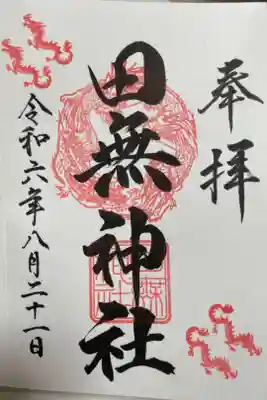 奉拝
田無神社
令和六年八月二十一日